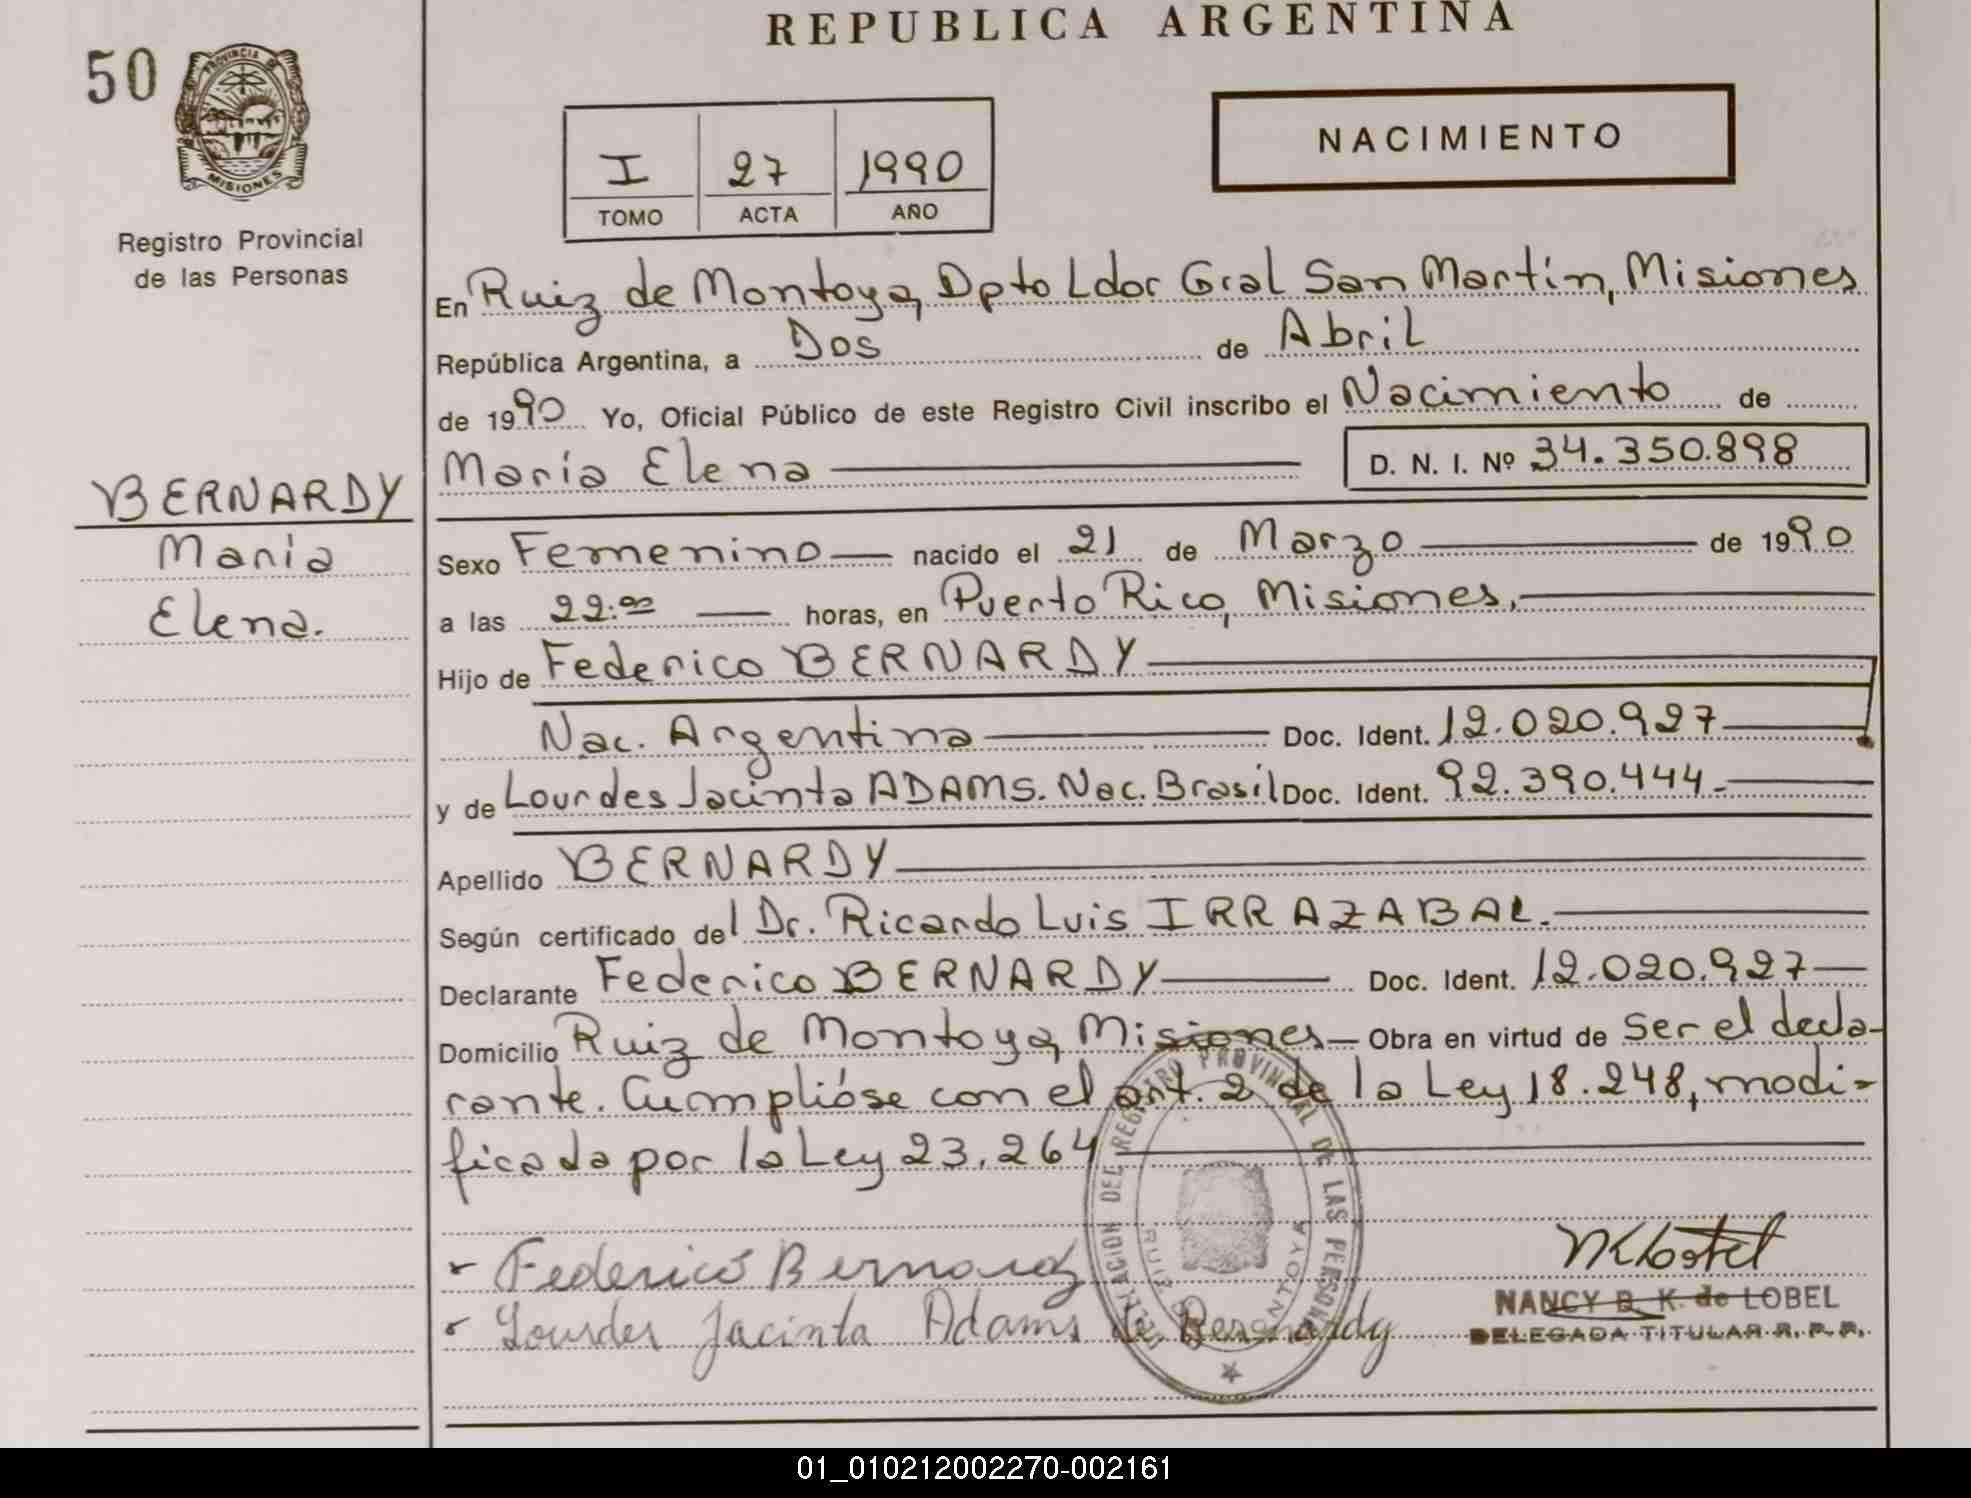 REPUBLICA ARGENTINA
50
PROVINCIA DE
MISIONES
Registro Provincial
de las Personas
I 27 1990
TOMO ACTA AÑO
NACIMIENTO
En Ruiz de Montoya, Dpto Ldor Gral San Martín, Misiones
República Argentina, a Dos de Abril
de 1990 Yo, Oficial Público de este Registro Civil inscribo el Nacimiento de
María Elena D. N. I. Nº 34.350.898
BERNARDY
María
Elena.
Sexo Femenino nacido el 21 de Marzo de 1990
a las 22:00 horas, en Puerto Rico, Misiones.
Hijo de Federico BERNARDY
Nac. Argentina Doc. Ident. 12.020.927
y de Lourdes Jacinta ADAMS. Nac. Brasil Doc. Ident. 92.390.444.-
Apellido BERNARDY
Según certificado del Dr. Ricardo Luis IRRAZABAL.
Declarante Federico BERNARDY Doc. Ident. 12.020.927
Domicilio Ruiz de Montoya, Misiones Obra en virtud de ser el decla-
rante. Cumplióse con el art. 2 de la Ley 18.248, modi-
ficada por la Ley 23.264
DELEGACION DEL REGISTRO PROVINCIAL DE LAS PERSONAS
RUIZ DE MONTOYA
Federico Bernardy
Lourdes Jacinta Adams de Bernardy
NANCY B. K. de LOBEL
DELEGADA TITULAR R. P. P.
01_010212002270-002161